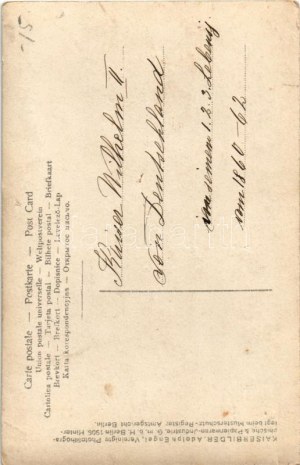 -15
Carte postale — Postkarte — Post Card
Union postale universelle — Weltpostverein
Cartolina postale — Tarjeta postal — Bilhete postal — Briefkaart
Brevkort — Brefkort — Dopisnice — Levelező-Lap
Kaiser Wilhelm II.
von Deutschland
seinem 1. 2. 3. Lebens
von 1860-62
KAISERBILDER. Adolph Engel, Vereinigte Photolithogra-
phische & Papierwaren-Industrie G. m. b. H. Berlin 1906. Hinter-
legt beim Musterschutz-Register Amtsgericht Berlin.